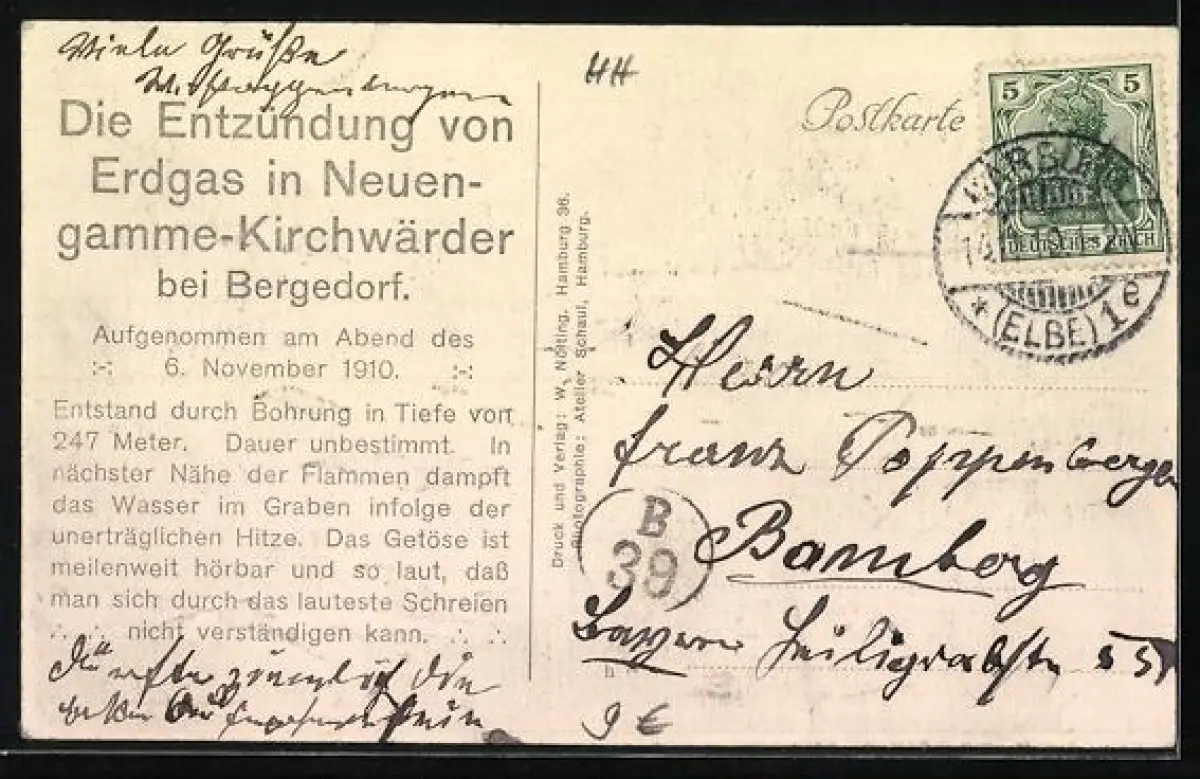 Viele Grüße
Die Entzündung von
Erdgas in Neuen-
gamme-Kirchwärder
bei Bergedorf.
Aufgenommen am Abend des
:-: 6. November 1910. :-:
Entstand durch Bohrung in Tiefe von
247 Meter. Dauer unbestimmt. In
nächster Nähe der Flammen dampft
das Wasser im Graben infolge der
unerträglichen Hitze. Das Getöse ist
meilenweit hörbar und so laut, daß
man sich durch das lauteste Schreien
∴ ∴ nicht verständigen kann. ∴ ∴
Dürfte ziemlich die
Druck und Verlag: W. Nölting, Hamburg 36.
Photographie: Atelier Schaul, Hamburg.
HH
Postkarte
5 5
DEUTSCHES REICH
HARBURG
* (ELBE) 1 e
Herrn
Franz Poppenberger
B
39
Bamberg
Bayern Heiliggrabstr. 55
9 €